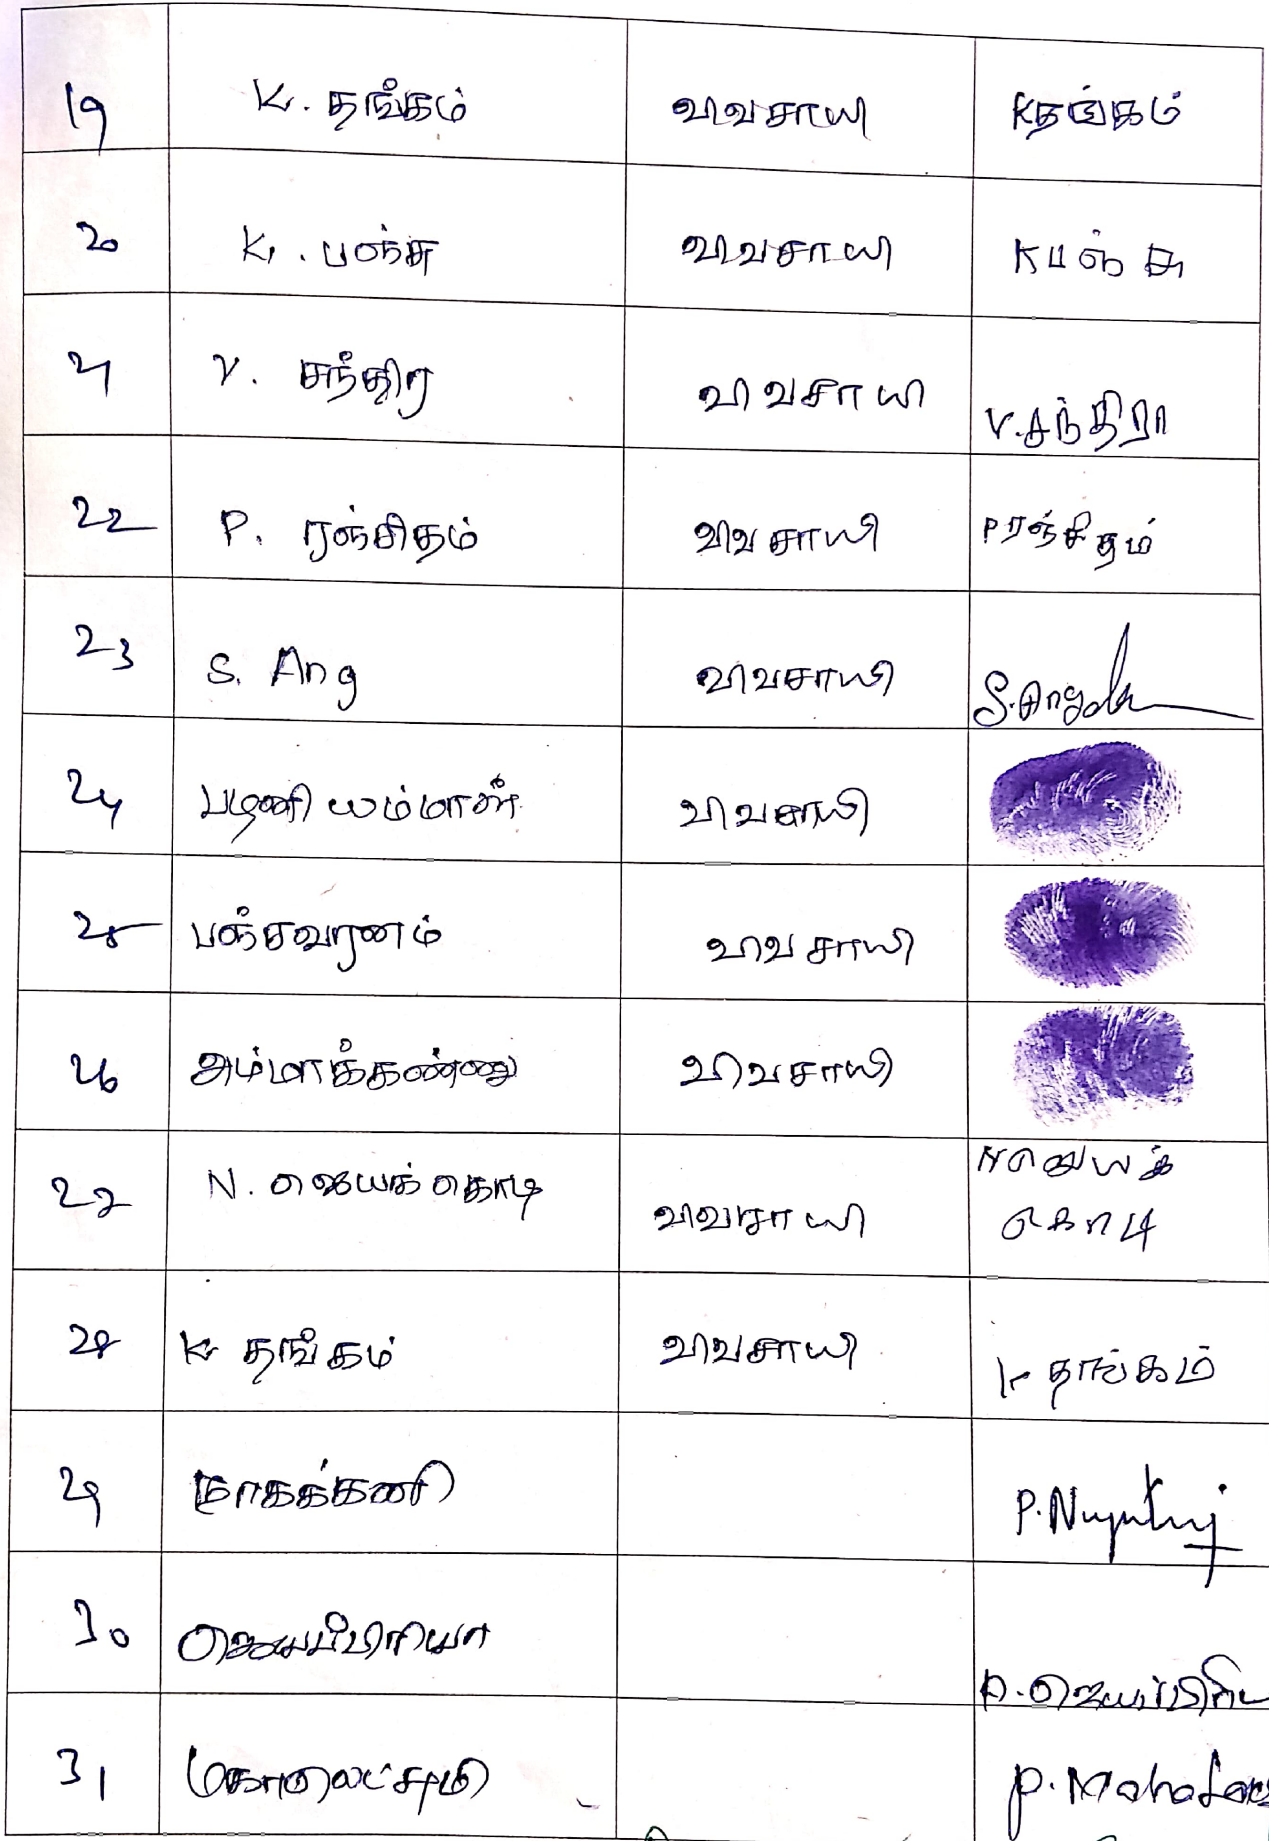 19 K. தங்கம் விவசாயி K தங்கம்
20 K. பஞ்சு விவசாயி K பஞ்சு
21 V. சந்திர விவசாயி V. சந்திரா
22 P. ரஞ்சிதம் விவசாயி P ரஞ்சிதம்
23 S. Ang விவசாயி
24 பழனியம்மாள் விவசாயி
25 பஞ்சவரணம் விவசாயி
26 அம்மாக்கண்ணு விவசாயி
27 N. ஜெயக்கொடி விவசாயி N ஜெயக்
கொடி
28 K தங்கம் விவசாயி K தாங்கம்
29 நாகக்கனி
30 ஜெயப்பிரியா
31 மகாலட்சுமி